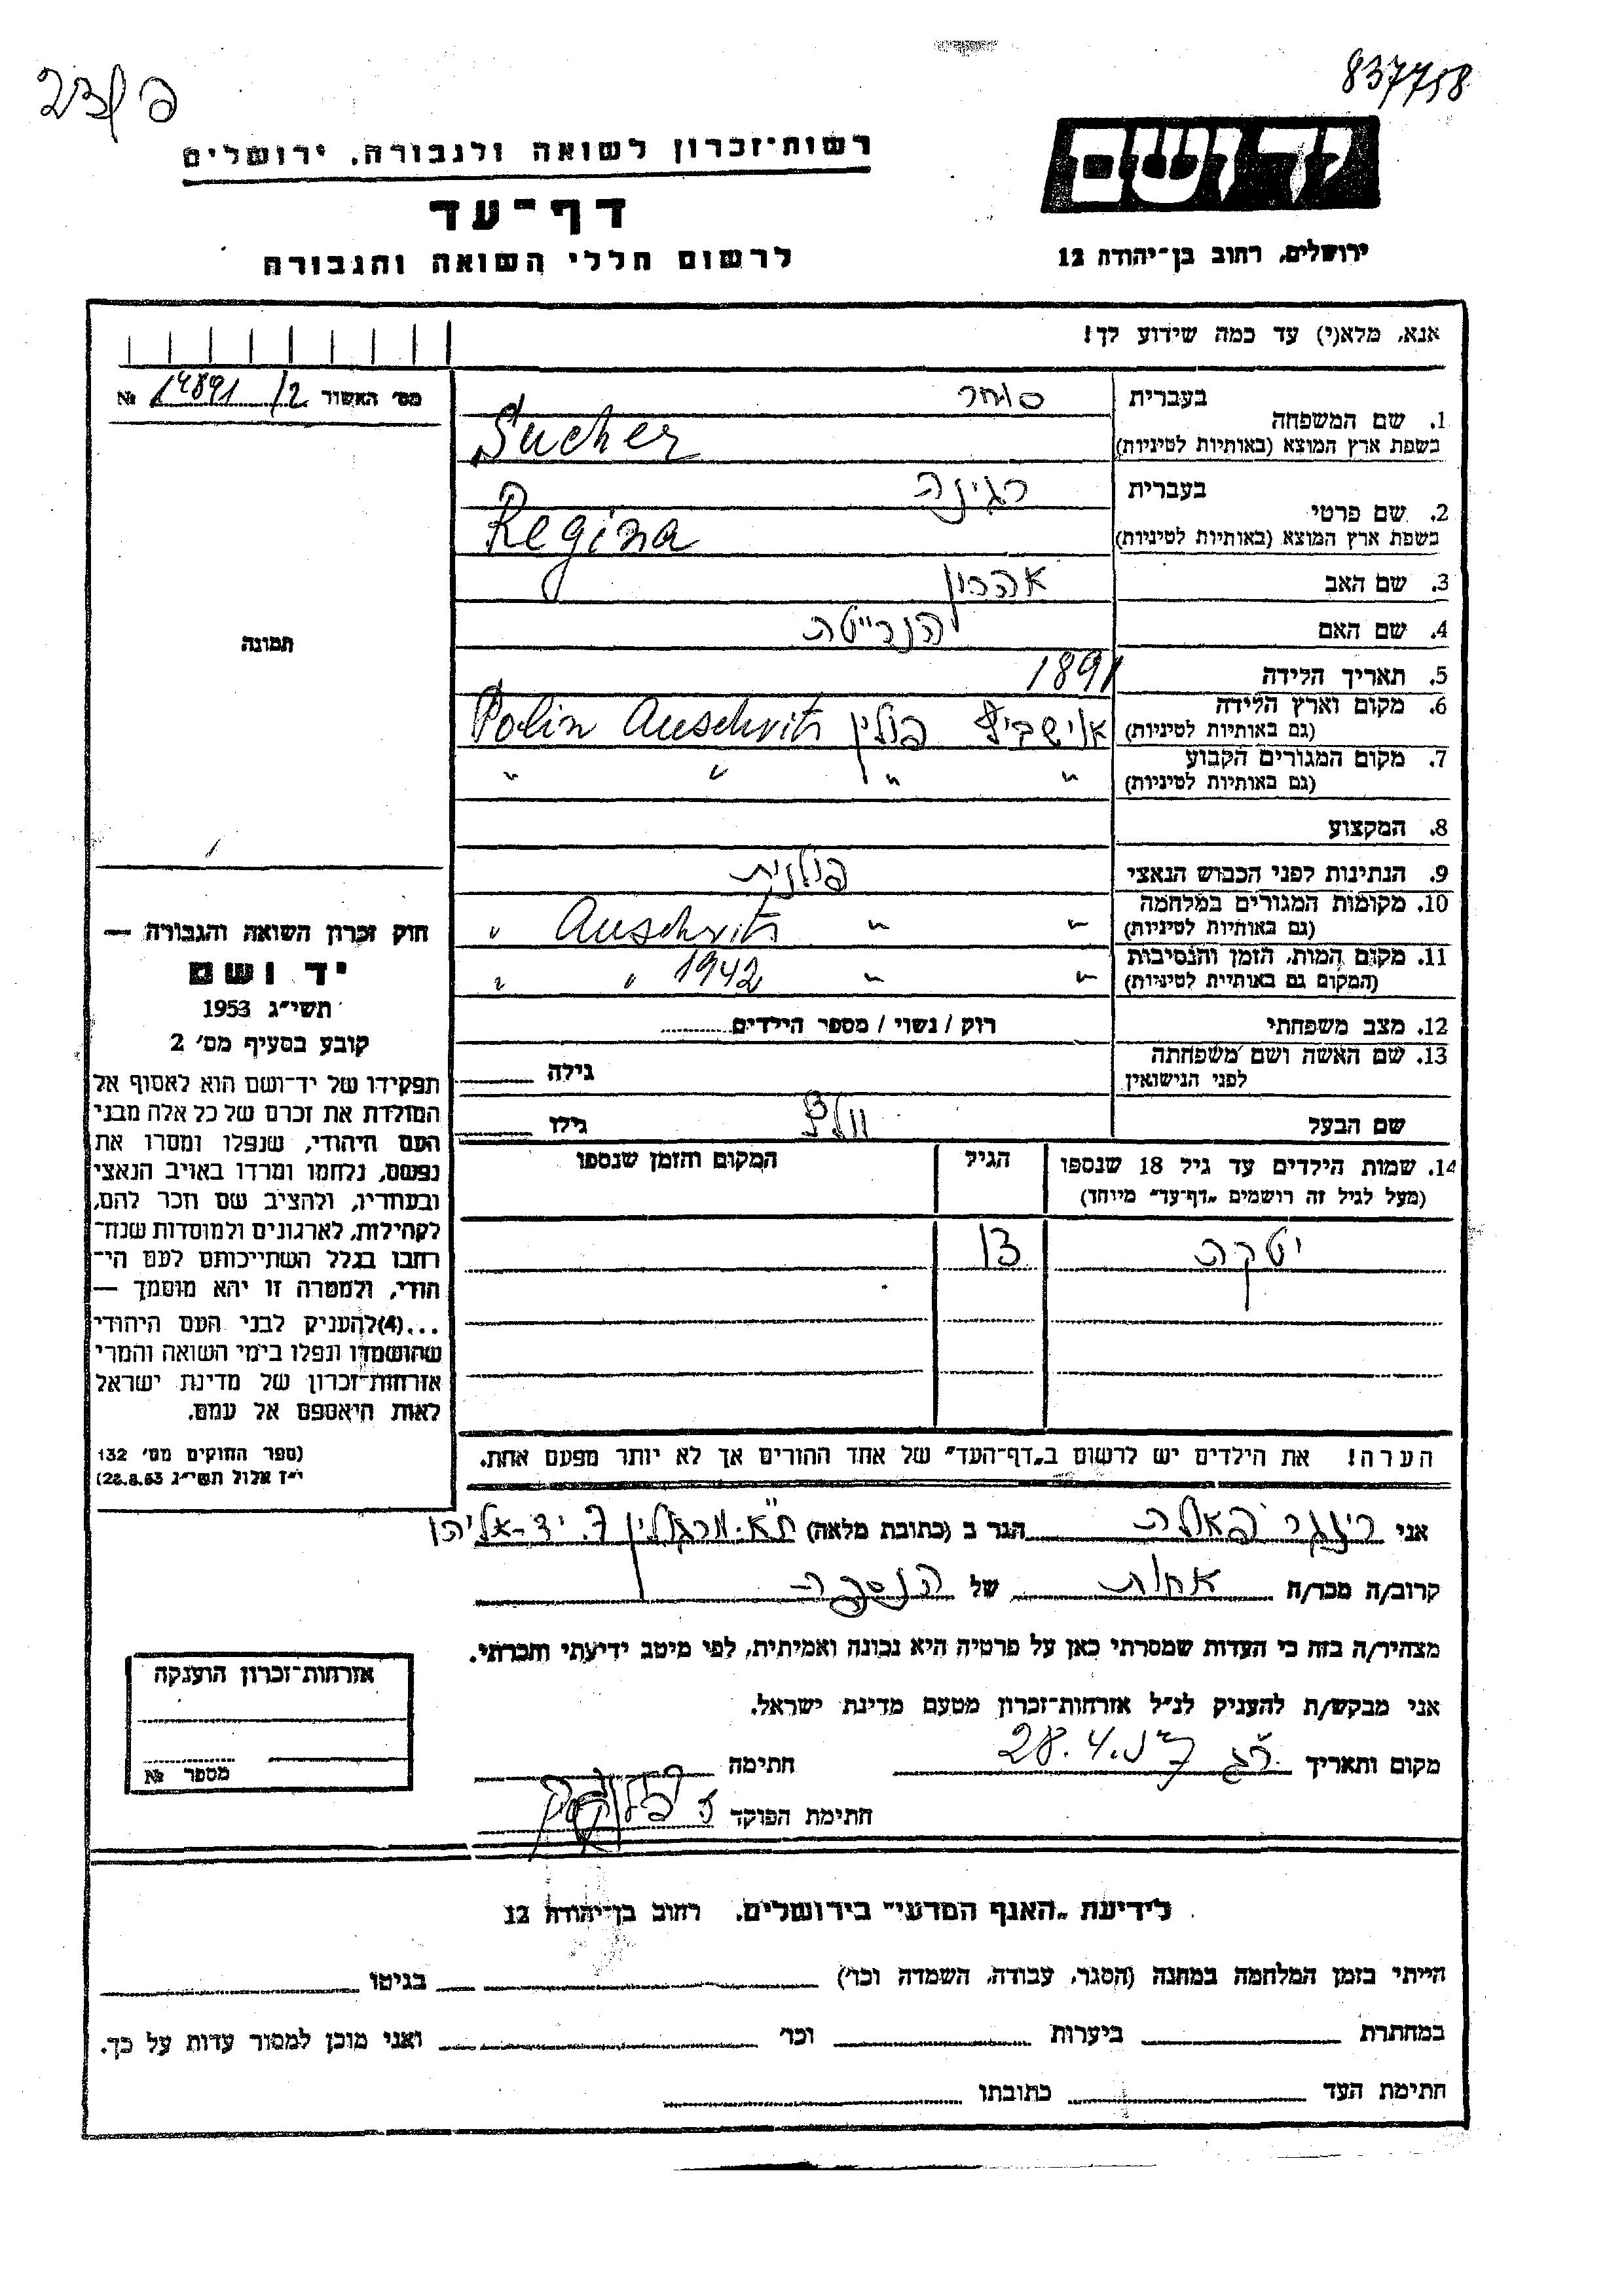 837758
יד ושם
רשות־זכרון לשואה ולגבורה, ירושלים
דף־עד
לרשום חללי השואה והגבורה
ירושלים, רחוב בן־יהודה 12
אנא, מלא(י) עד כמה שידוע לך!
מס׳ האשור 14891/2 №
1. שם המשפחה
בעברית סוחר
בשפת ארץ המוצא (באותיות לטיניות) Sucher
2. שם פרטי
בעברית רגינה
בשפת ארץ המוצא (באותיות לטיניות) Regina
3. שם האב אהרון
4. שם האם הנרייטה
5. תאריך הלידה 1891
6. מקום וארץ הלידה
(גם באותיות לטיניות) פולין Polin Auschvitz
7. מקום המגורים הקבוע
(גם באותיות לטיניות) " " " "
8. המקצוע
9. הנתינות לפני הכבוש הנאצי פולנית
10. מקומות המגורים במלחמה
(גם באותיות לטיניות) " " Auschvitz "
11. מקום המות, הזמן והנסיבות
(המקום גם באותיות לטיניות) " " 1942 " "
12. מצב משפחתי רוק / נשוי / מספר הילדים
13. שם האשה ושם משפחתה
לפני הנישואין גילה
שם הבעל גילו
14. שמות הילדים עד גיל 18 שנספו הגיל המקום והזמן שנספו
(מעל לגיל זה רושמים „דף־עד" מיוחד)
יטקה 13
הערה! את הילדים יש לרשום ב„דף־העד" של אחד ההורים אך לא יותר מפעם אחת.
תמונה
חוק זכרון השואה והגבורה —
יד ושם
תשי״ג 1953
קובע בסעיף מס׳ 2
תפקידו של יד־ושם הוא לאסוף אל
המולדת את זכרם של כל אלה מבני
העם היהודי, שנפלו ומסרו את
נפשם, נלחמו ומרדו באויב הנאצי
ובעוזריו, ולהציב שם וזכר להם,
לקהילות, לארגונים ולמוסדות שנח־
רחבו בגלל השתייכותם לעם הי־
הודי, ולמטרה זו יהא מוסמך —
...(4)להעניק לבני העם היהודי
שהושמדו ונפלו בימי השואה והמרי
אזרחות־זכרון של מדינת ישראל
לאות היאספם אל עמם.
(ספר החוקים מס׳ 132
י״ז אלול תשי״ג 28.8.53)
אני רינגר פאולה הגר ב (כתובת מלאה) ת"א. מרגולין 7. יד-אליהו
קרוב/ה מכר/ה אחות של הנספה
מצהיר/ה בזה כי העדות שמסרתי כאן על פרטיה היא נכונה ואמיתית, לפי מיטב ידיעתי והכרתי.
אני מבקש/ת להעניק לנ״ל אזרחות־זכרון מטעם מדינת ישראל.
מקום ותאריך 28.4. חתימה
חתימת הפוקד
אזרחות־זכרון הוענקה
מספר №
לידיעת „האגף המדעי" בירושלים, רחוב בן־יהודה 12
הייתי בזמן המלחמה במחנה (הסגר, עבודה, השמדה וכו׳) בגיטו
במחתרת ביערות וכו׳ ואני מוכן למסור עדות על כך.
חתימת העד כתובתו